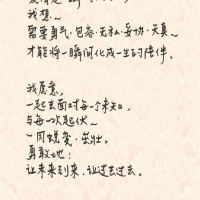 我想～
需要勇气·包容·无私·妥协·天真～
才能将一瞬间化成一生的陪伴。
我愿意，
一起去面对每一个未知，
与每一次起伏～
一同蜕变·茁壮。
勇敢地：
让未来到来，让过去过去。